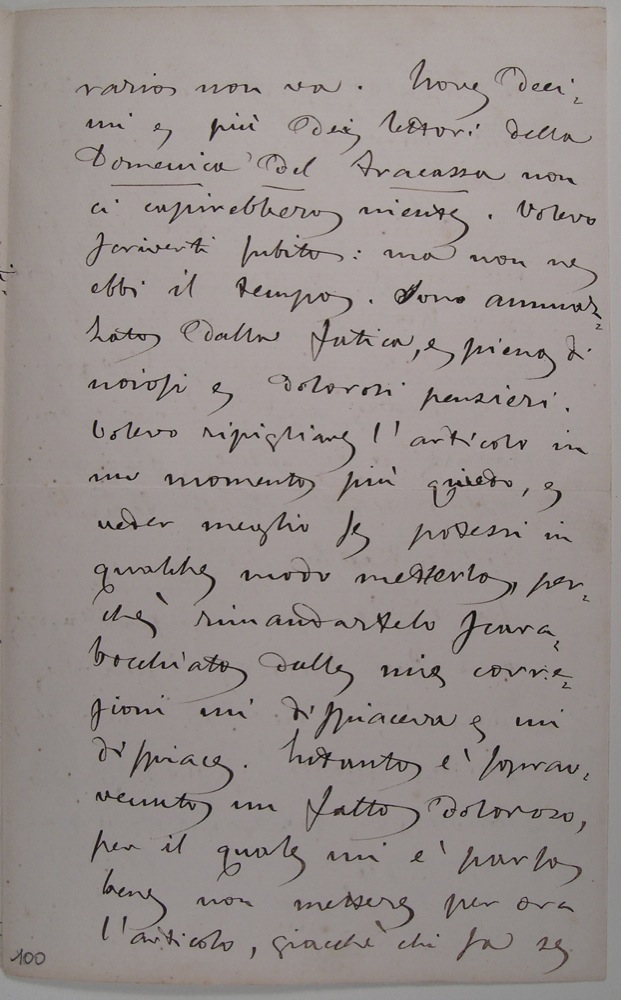 varios non va. Nove deci-
mi e più dei lettori della
Domenica del Fracassa non
ci capirebbero niente. Volevo
scriverti subito: ma non ne
ebbi il tempo. Sono ammaz-
zato dalla fatica, e pieno di
noiosi e dolorosi pensieri.
Volevo ripigliare l'articolo in
un momento più quieto, e
veder meglio se potessi in
qualche modo metterlo, per-
chè rimandartelo scara-
bocchiato dalle mie corre-
zioni mi dispiaceva e mi
dispiace. Intanto è soprav-
venuto un fatto doloroso,
per il quale mi è parso
bene non mettere per ora
l'articolo, giacchè chi sa se
100